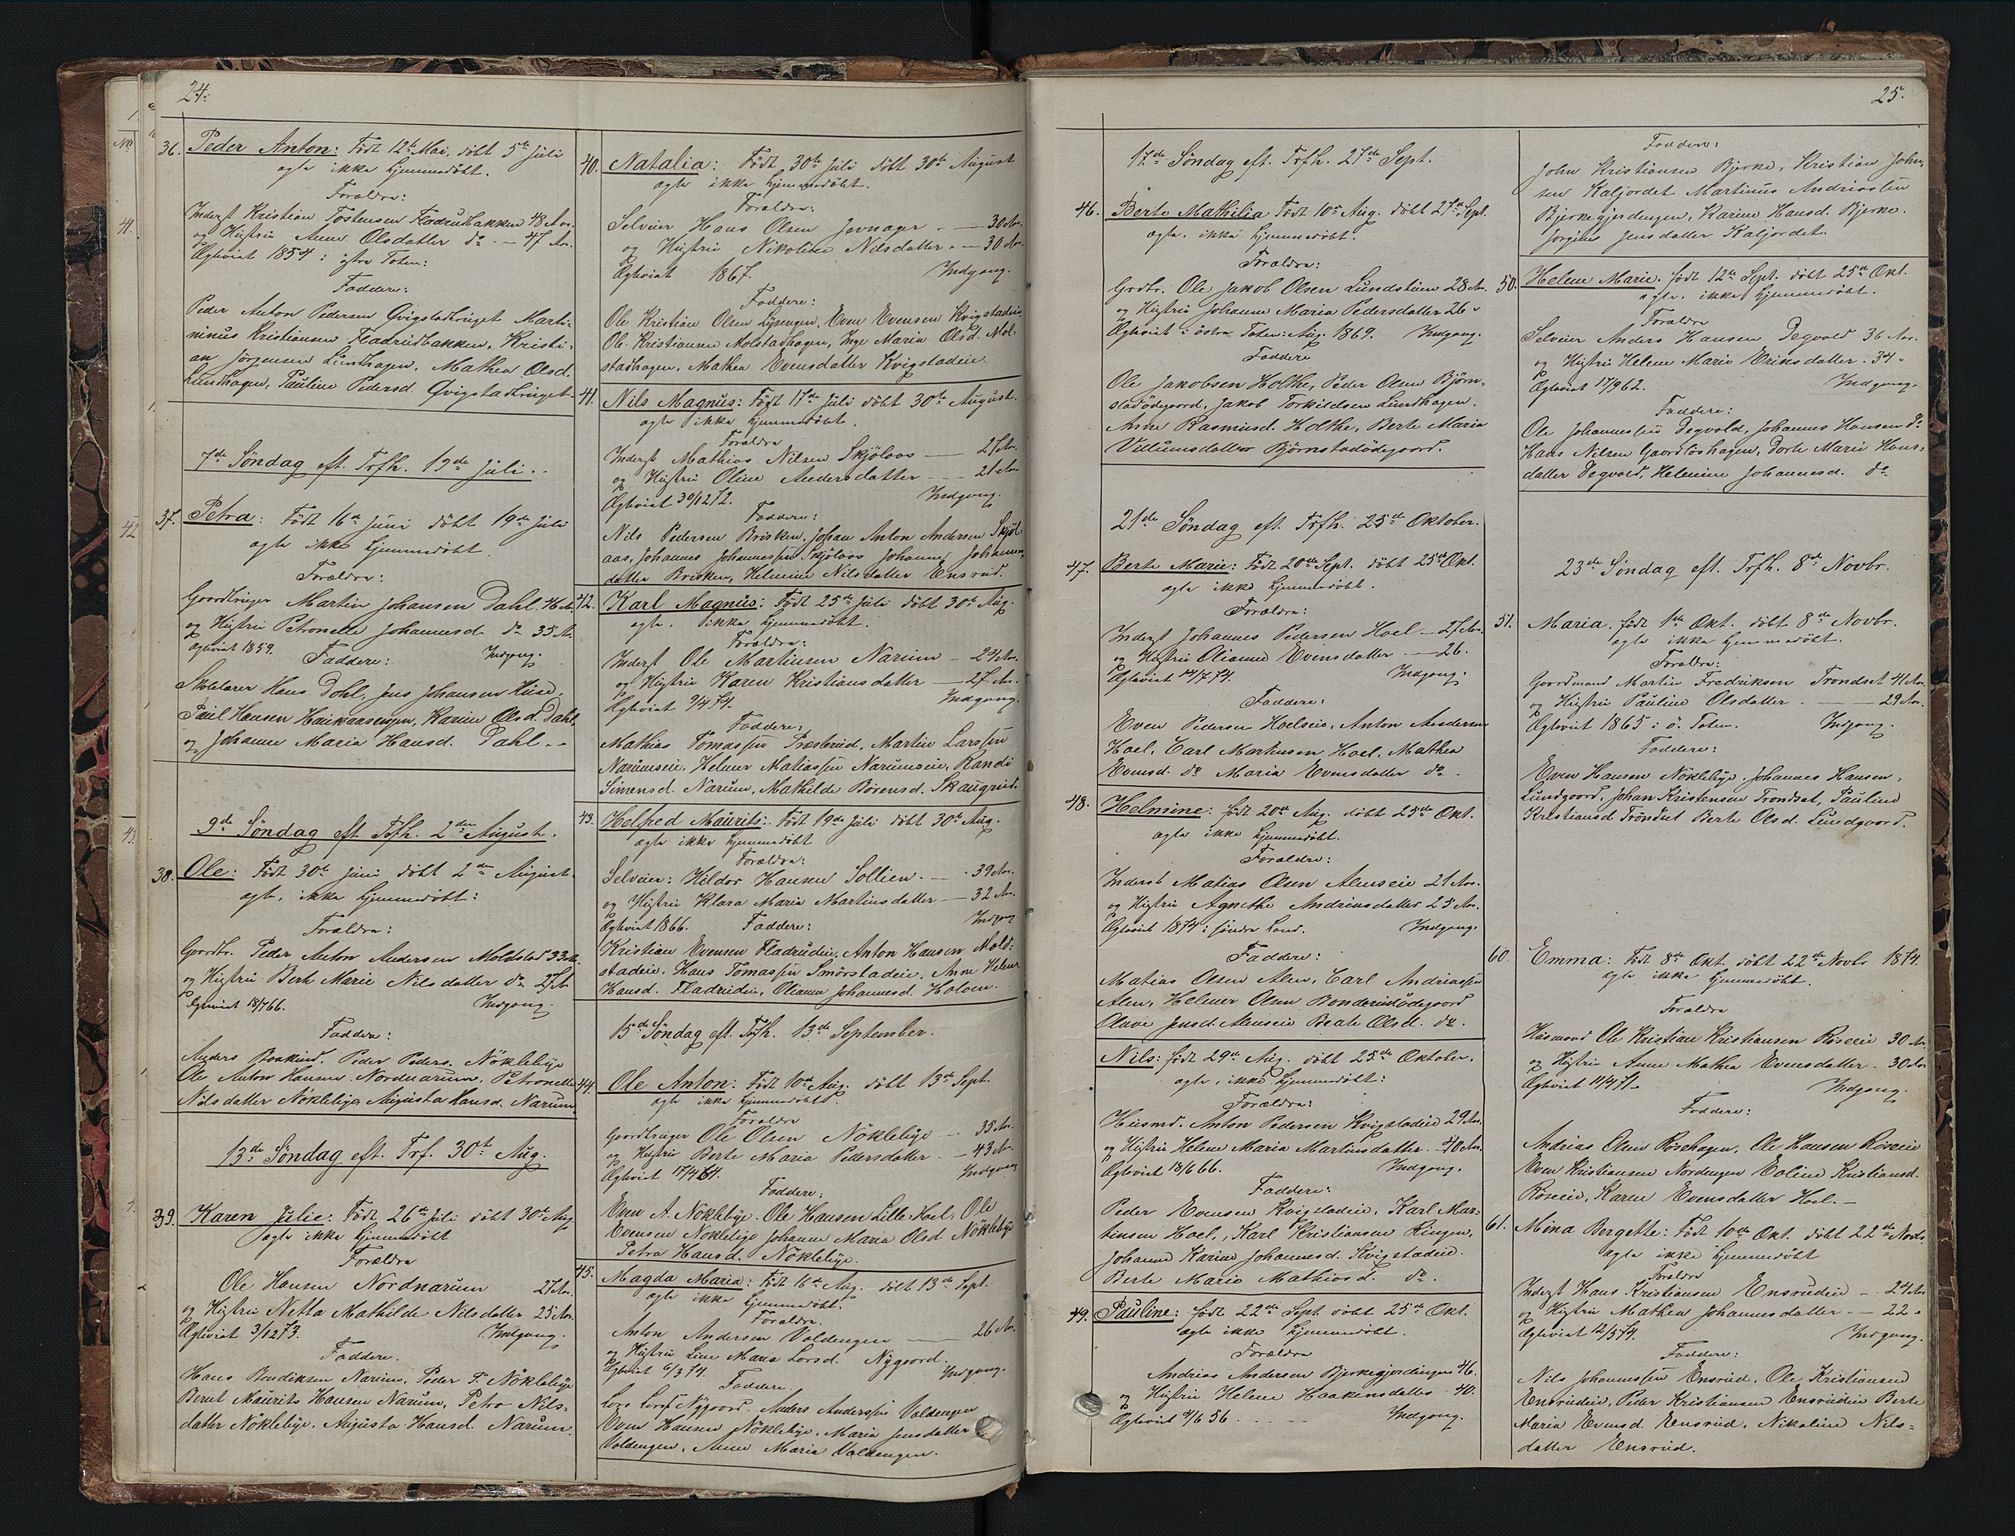 24.
36. Peder Anton: Født 12te Mai, döbt 5te Juli
ægte ikke hjemmedöbt.
Forældre:
Inderst Kristian Tostensen Fladrudbakken 48 Aar.
og Hustru Anne Olsdatter do - 47 Ar.
Ægteviet 1854 i östre Toten:
Faddere:
Peder Anton Pedersen Qvigstadtrinet Marti-
minus Kristiansen Fladrudbakken, Kristi-
an Jörgensen Lundhagen, Mathea Olsd.
Lundhagen, Pauline Pedersd. Qvigstad
7de Söndag eft. Trfh. 19de Juli.
37. Petra: Født 16de Juni döbt 19de Juli
ægte ikke hjemmedöbt.
Forældre:
Gaardbruger Martin Johansen Dahl 46 Ar
og Hustru Petronelle Johannesd. do 35 Ar
Ægteviet 1859. Faddere: Indgang.
Skolelærer Hans Dahl, Jens Johansen Huse,
Paul Hansen Haikaasengen, Karine Olsd. Dahl
og Johanne Maria Hansd. Dahl
9de Söndag eft. Trfh. 2den August.
38. Ole: Født 30te Juni döbt 2den August
ægte, ikke hjemmedöbt:
Forældre:
Gaardbr. Peder Anton Andersen Molstad 33 Ar
og Hustru Berte Marie Nilsdatter do 27 Ar
Ægteviet 18/7 66. Indgang.
Faddere:
Anders Peder Peders. Nöklebye
Ole Anton Hansen Nordnarum, Petronelle
Nilsdatter Nöklebye, Augusta Hansd. Narum
13de Söndag eft. Trf. 30te Aug.
39. Karen Julie: Født 26de Juli döbt 30te Aug
ægte ikke hjemmedöbt
Forældre
Ole Hansen Nordnarum 27 Ar.
og Hustru Netta Mathilde Nilsdatter 25 Ar.
Ægteviet 3/12 73. Indgang.
Faddere.
Hans Bendiksen Narum, Peder T. Nöklebye
Bernt Maurits Hansen Narum, Petra Nils-
datter Nöklebye, Augusta Hansd. Narum.
40. Natalia: Født 30te Juli döbt 30te August
ægte ikke hjemmedöbt.
Forældre:
Selveier Hans Olsen Jevnager - 30 Ar.
og Hustru Nikoline Nilsdatter - 30 Ar.
Ægteviet 1867. Indgang.
Faddere:
Ole Kristian Olsen Lysengen, Even Evensen Kvigstadeie
Ole Kristiansen Molstadhagen, Inge Maria Olsd. Mol-
stadhagen, Mathea Evensdatter Kvigstadeie.
41. Nils Magnus: Født 17de Juli döbt 30te August.
ægte ikke hjemmedöbt.
Forældre
Inderst Mathias Nilsen Skjölaas - 27 Ar.
og Hustru Oline Andersdatter - 21 Ar.
Ægteviet 30/12 72. Indgang.
Faddere:
Nils Pedersen Brisken, Johan Anton Andersen Skjöl-
aas, Johannes Johannessen Skjölaas Johanne Johannes-
datter Brisken, Helmine Nilsdatter Ensrud.
42. Karl Magnus: Født 25de Juli döbt 30te Aug.
ægte, ikke hjemmedöbt.
Forældre:
Inderst Ole Martinsen Narum - 24 Ar.
og Hustru Karen Kristiansdatter - 27 Ar.
Ægteviet 9/4 74. Indgang.
Faddere,
Mathias Tomassen Præsterud, Martin Larssen
Narumseie, Helmer Matiassen Narumseie, Randi
Simensd. Narum, Mathilde Börensd. Skaugrud.
43. Helfred Maurits: Født 19de Juli döbt 30te Aug.
ægte ikke hjemmedöbt
Forældre:
Selveier: Hildor Hansen Sollien. - 39 Ar.
og Hustru Klara Marie Martinsdatter - 32 Ar.
Ægteviet 1866. Faddere: Indgang
Kristian Evensen Fladrudeie, Anton Hansen Mold-
stadeie. Hans Tomassen Smörstadeie, Anne Helene
Hansd. Fladrudeie, Oliana Johannesd. Holven.
15de Söndag eft. Trfh. 13de September.
44. Ole Anton: Født 10de Aug. döbt 13de Sept.
ægte ikke hjemmedöbt.
Forældre
Gaardbruger Ole Olsen Nöklebye - 35 Ar.
og Hustru Berte Maria Pedersdatter - 43 Ar.
Ægteviet 17/4 64. Indgang
Faddere:
Even A. Nöklebye. Ole Hansen Lille-Hoel, Ole
Evensen Nöklebye Johanne Maria Olsd Nöklebye
Petra Hansd. Nöklebye.
45. Magda Maria: Født 16de Aug. döbt 13de Sept.
ægte ikke hjemmedöbt.
Forældre.
Anton Andersen Valdengen - 26 Ar.
og Hustru Line Maria Larsd. Nygaard.
Ægteviet 6/3 74. Indgang.
Faddere
Lars Larsen Nygaard. Anders Anderssen Valdengen
Even Hansen Nöklebye, Maria Jensdatter
Valdengen, Anne Maria Valdengen.
25.
17de Söndag eft. Trfh. 27de Sept.
46. Berte Mathilia Født 10de Aug. döbt 27de Sept.
ægte, ikke hjemmedöbt.
Forældre:
Grdbr. Ole Jakob Olsen Lundsteine 28 Ar.
og Hustru Johanne Maria Pedersdatter 26 -
Ægteviet i östre Toten: Aug. 1869. Indgang.
Faddere
Ole Jakobsen Holthe, Peder Olsen Björn-
stadödegaard, Jakob Torkildsen Lundhagen.
Anne Rasmusd. Holthe, Berte Maria
Villumsdatter Björnstadödegaard.
21de Söndag eft. Trfh. 25de Oktober.
47. Berte Marie: Født 20de Sept. döbt 25de Okt.
ægte ikke hjemmedöbt.
Forældre:
Inderst Johannes Pedersen Hoel - 27 Ar.
og Hustru Olianne Evensdatter - 26.
Ægteviet 14/7 74. Indgang.
Faddere:
Even Pedersen Hoelseie, Anton Andersen
Hoel, Carl Martinsen Hoel, Mathea
Evensd. do Maria Evensdatter do.
48. Helmine: født 20de Aug. döbt 25de Okt.
ægte ikke hjemmedöbt.
Forældre:
Inderst Matias Olsen Alenseie 21 Ar.
og Hustru Agnethe Andriasdatter 25 Ar.
Ægteviet 1874 i söndre Land. Indgang.
Faddere:
Matias Olsen Alen, Carl Andriassen
Alen, Helmer Olsen Bonderudödegaard
Olave Jensd. Alenseie Beate Olsd. do.
Nils: født 29de Aug. döbt 25de Oktober.
ægte, ikke hjemmedöbt:
Forældre:
Husmd. Anton Pedersen Kvigstadeie 29 Ar.
og Hustru Helene Maria Martinsdatter - 40 Ar.
Ægteviet 18/6 66. Indgang.
Faddere:
Peder Evensen Kvigstadeie, Karl Mar-
tinsen Hoel, Karl Kristiansen Ringen,
Johanne Karine Johannesd. Kvigstadeie.
Berte Maria Mathiasd. do.
49. Pauline: født 22de Sept döbt 25de Okt.
ægte ikke hjemmedöbt.
Forældre
Andrias Andersen Bjerkegjerdingen 46.
og Hustru Helene Haakensdatter - 40.
Ægteviet 4/6 56. Indgang.
Faddere:
John Kristiansen Bjerke, Kristian John-
sen Kaljordet Martinus Andriassen
Bjerkegjerdengen, Karine Hansd. Bjerke.
Jörgine Jensdatter Kaljordet.
50. Helene Marie. født 12te Sept. döbt 25de Okt.
ægte, ikke hjemmedöbt.
Forældre
Selveier Anders Hansen Degvold 36 Ar.
og Hustru Helene Maria Eriksdatter - 34 -
Ægteviet 17/9 62. Indgang.
Faddere:
Ole Johannessen Degvold, Johannes Hansen do
Hans Nilsen Gaardløshagen, Dorte Marie Hans-
datter Degvold, Helmine Johannesd. do
23de Söndag eft. Trfh. 8de Novbr.
51. Maria, født 1ste Okt. döbt 8de Novbr.
ægte ikke hjemmedöbt.
Forældre:
Gaardmand Martin Fredriksen Trondset 41 Ar.
og Hustru Pauline Olsdatter. - 29 Ar.
Ægteviet 1865 i ö. Toten. Indgang.
Faddere:
Even Hansen Nöklebye. Johannes Hansen
Lundgaard, Johan Kristensen Trondset, Pauline
Kristiansd. Trondset Berte Olsd. Lundgaard.
60. Emma: Født 8de Okt. döbt 22de Novbr 1874.
ægte ikke hjemmedöbt.
Forældre
Husmand Ole Kristian Kristiansen Röseeie 30 Ar.
og Hustru Anne Mathea Evensdatter - 30 Ar
Ægteviet 14/4 71. Indgang.
Faddere:
Andrias Olsen Rosehagen, Ole Hansen Röseeie
Even Kristiansen Nordengen Eoline Kristiansd.
Röseeie, Karen Evensdatter Hoel. -
61. Mina Bergette: Født 10de Okt. döbt 22de Novbr.
ægte ikke hjemmedöbt
Forældre
Inderst Hans Kristiansen Ensrudeie - 24 Ar
og Hustru Mathea Johannesdatter - 22 -
Ægteviet 12/5 74. Indgang.
Faddere:
Nils Johannessen Ensrud, Ole Kristiansen
Ensrudeie, Peder Kristiansen Ensrudeie Berte
Maria Evensd. Ensrud, Nikoline Nils-
datter Ensrud.